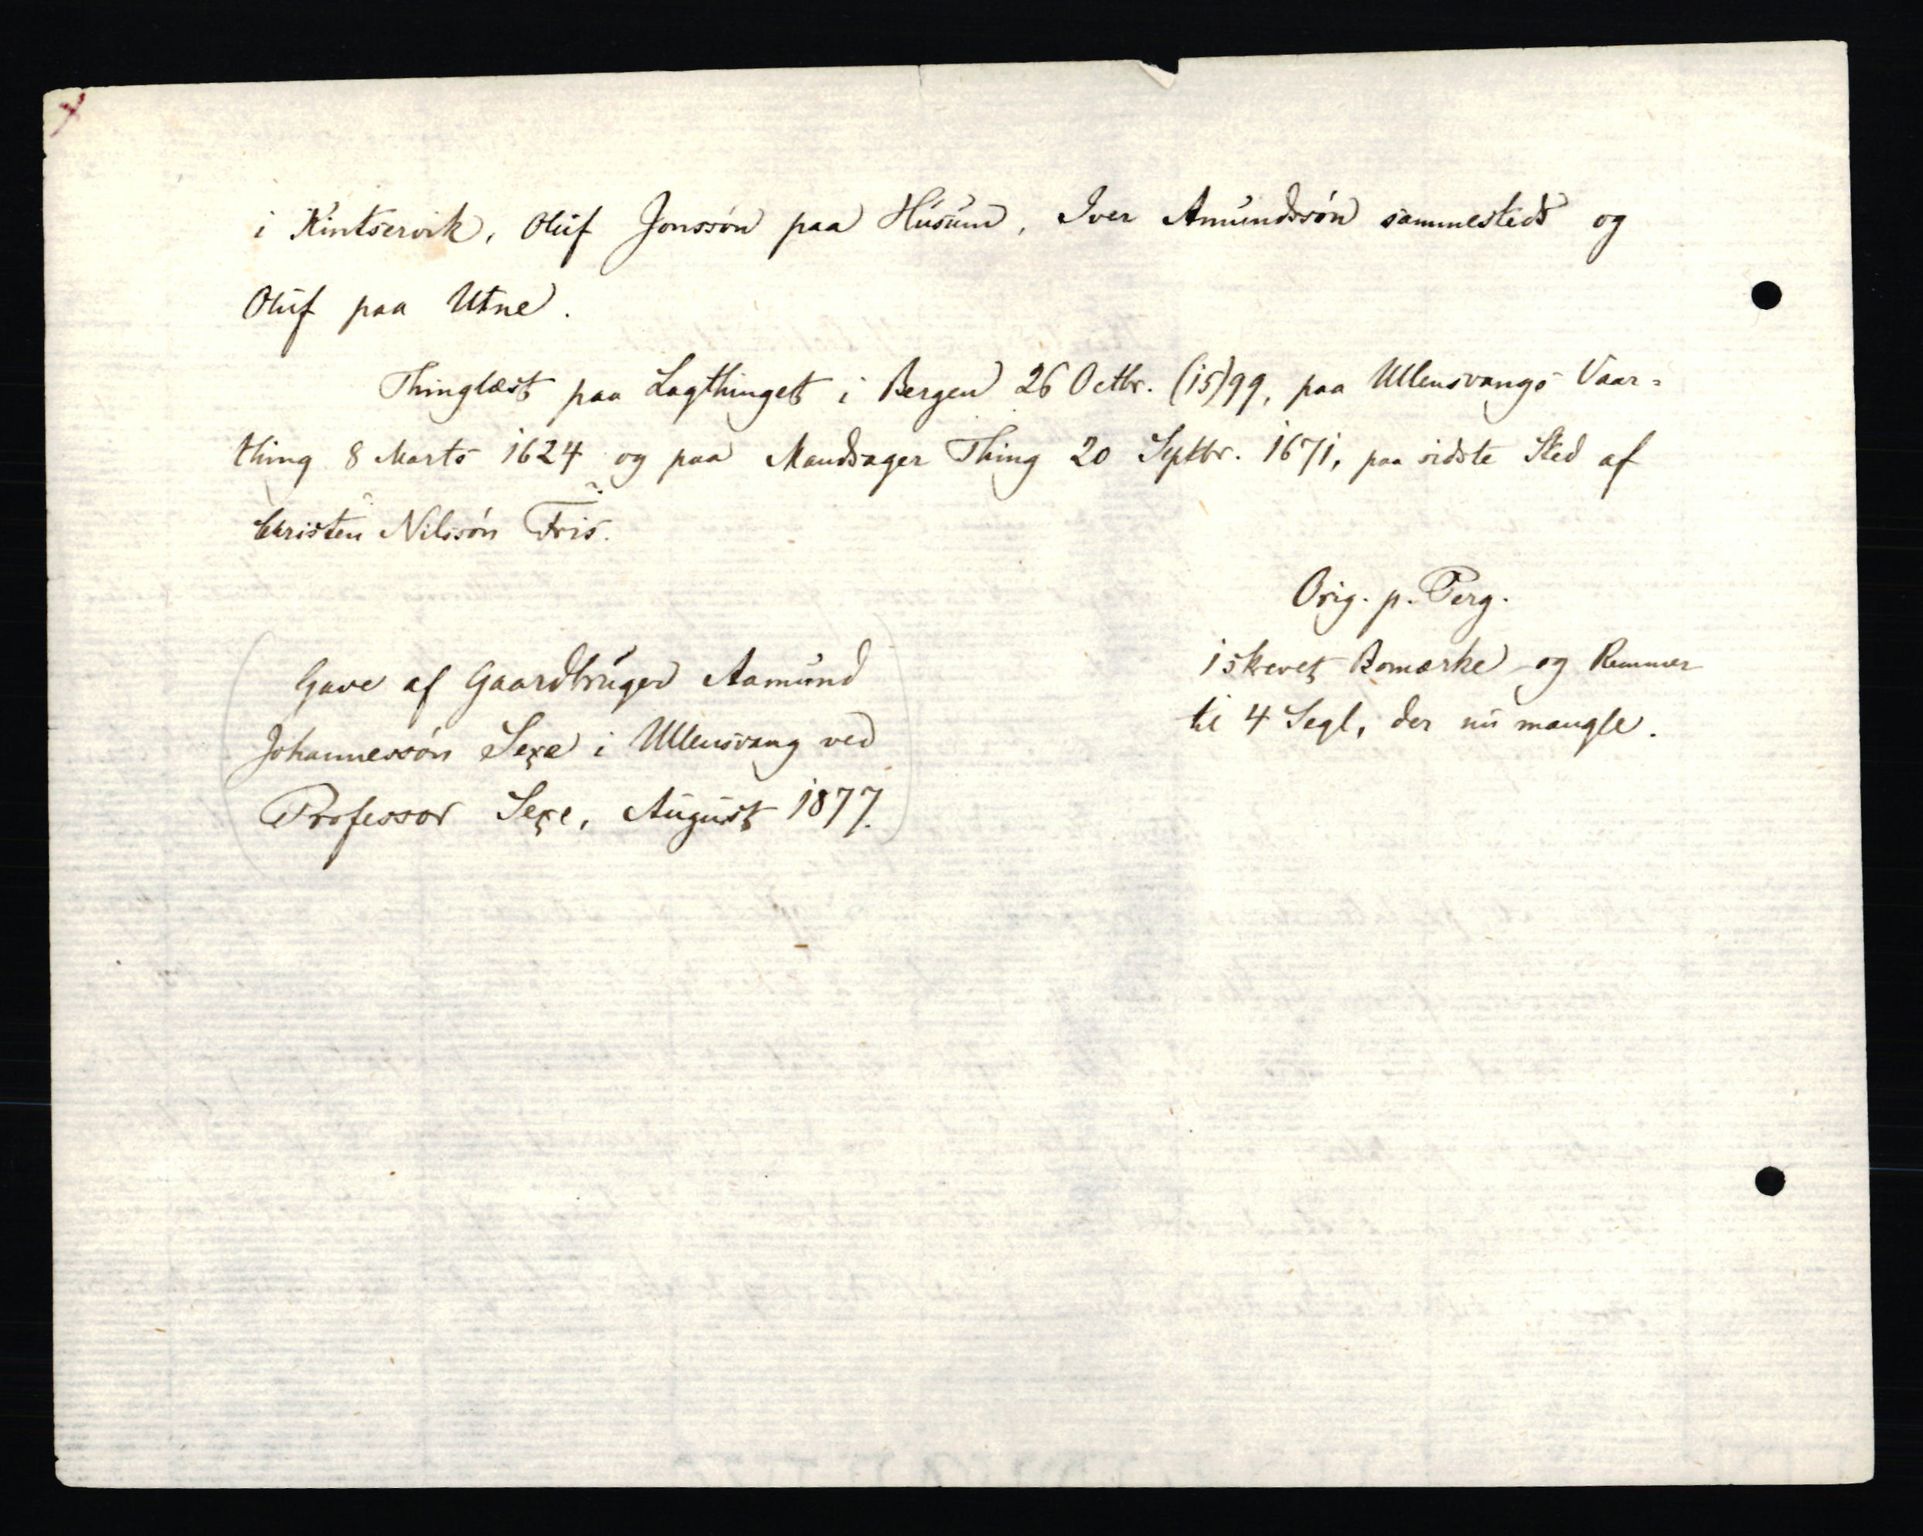 i Kintservik, Oluf Jonssøn paa Husum, Iver Amundssøn sammesteds og
Oluf paa Utne.
Thinglæst paa Lagthinget i Bergen 26 Octbr. (15)99, paa Ullensvangs Vaar=
thing 8 Marts 1624 og paa Maudsager Thing 20 Septbr. 1671, paa sidste Sted af
Christen Nilssøn Friis.
Orig. p. Perg.
iskrevet Bomærke og Remmer
til 4 Segl, der nu mangle.
Gave af Gaardbruger Aamund
Johannessøn Sexe i Ullensvang ved
Professor Sexe, August 1877.